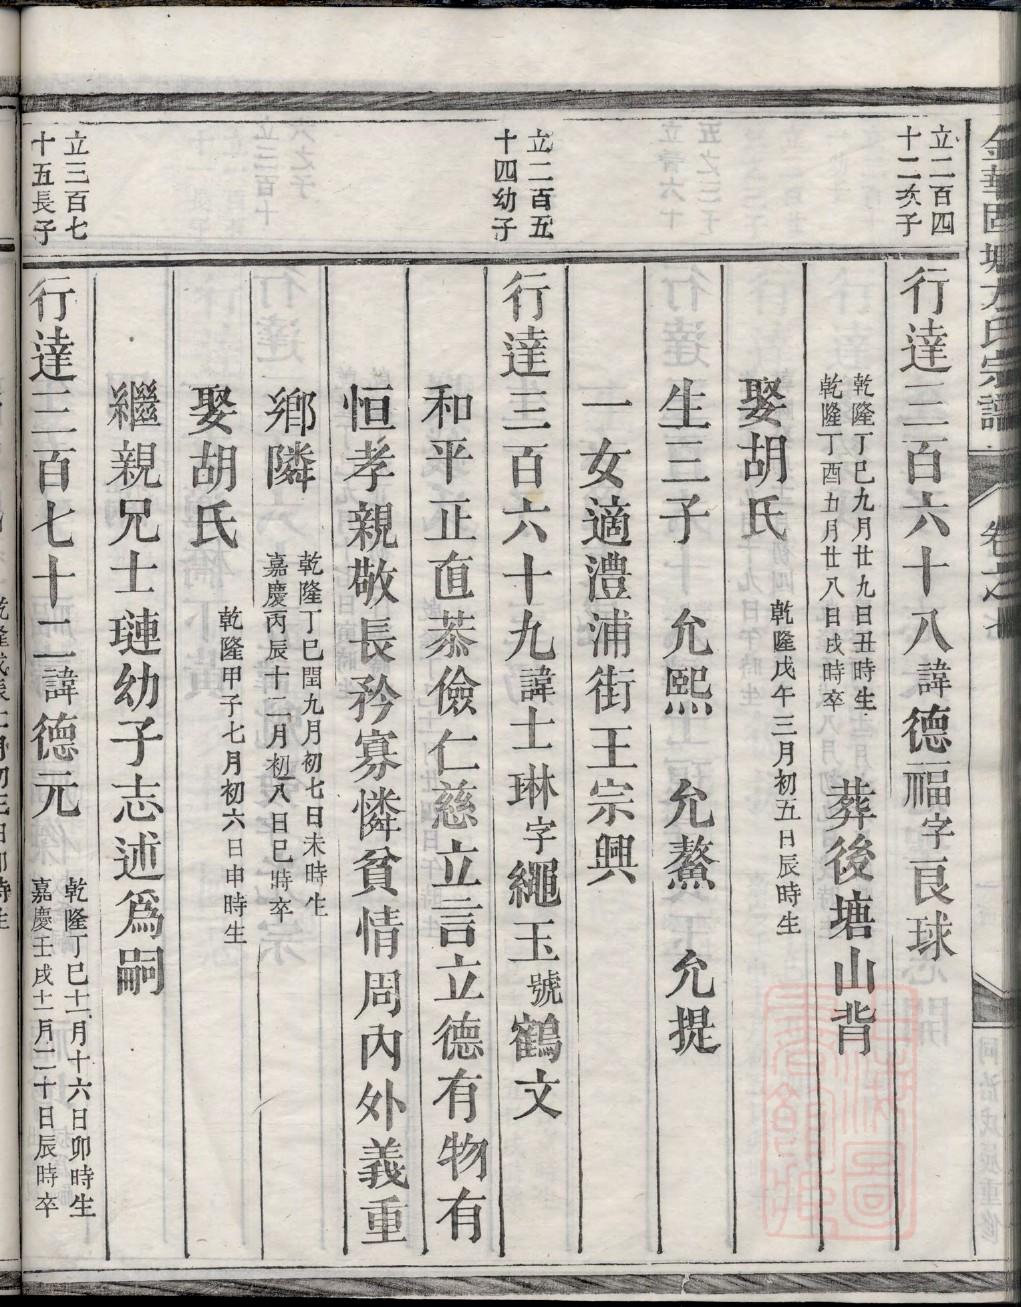 金華固塘方氏宗譜
卷之七
同治戊辰重修
立二百四
十二次子
行達三百六十八諱德福字良球
乾隆丁巳九月廿九日丑時生
乾隆丁酉五月廿八日戌時卒
葬後塘山背
娶胡氏
乾隆戊午三月初五日辰時生
生三子 允熙 允鰲 允提
一女適澧浦街王宗興
立二百五
十四幼子
行達三百六十九諱士琳字繩玉號鶴文
和平正直恭儉仁慈立言立德有物有
恒孝親敬長矜寡憐貧情周內外義重
鄉隣
乾隆丁巳閏九月初七日未時生
嘉慶丙辰十一月初八日巳時卒
娶胡氏
乾隆甲子七月初六日申時生
繼親兄士璉幼子志述爲嗣
立三百七
十五長子
行達三百七十二諱德元
乾隆丁巳十一月十六日卯時生
嘉慶壬戌十一月二十日辰時卒